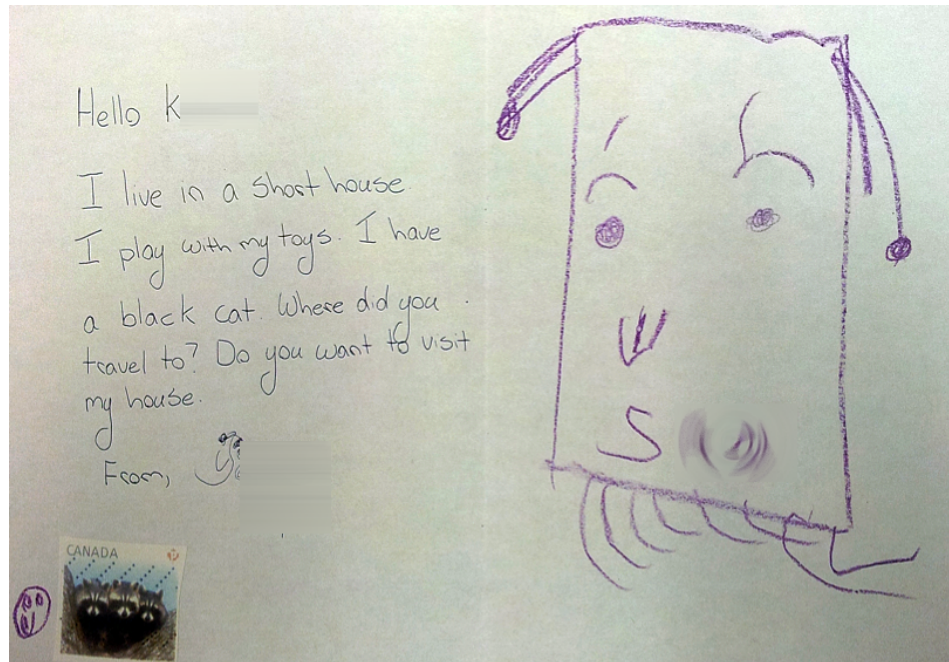 Hello K
I live in a short house.
I play with my toys. I have
a black cat. Where did you
travel to? Do you want to visit
my house.
From,
CANADA
P
S